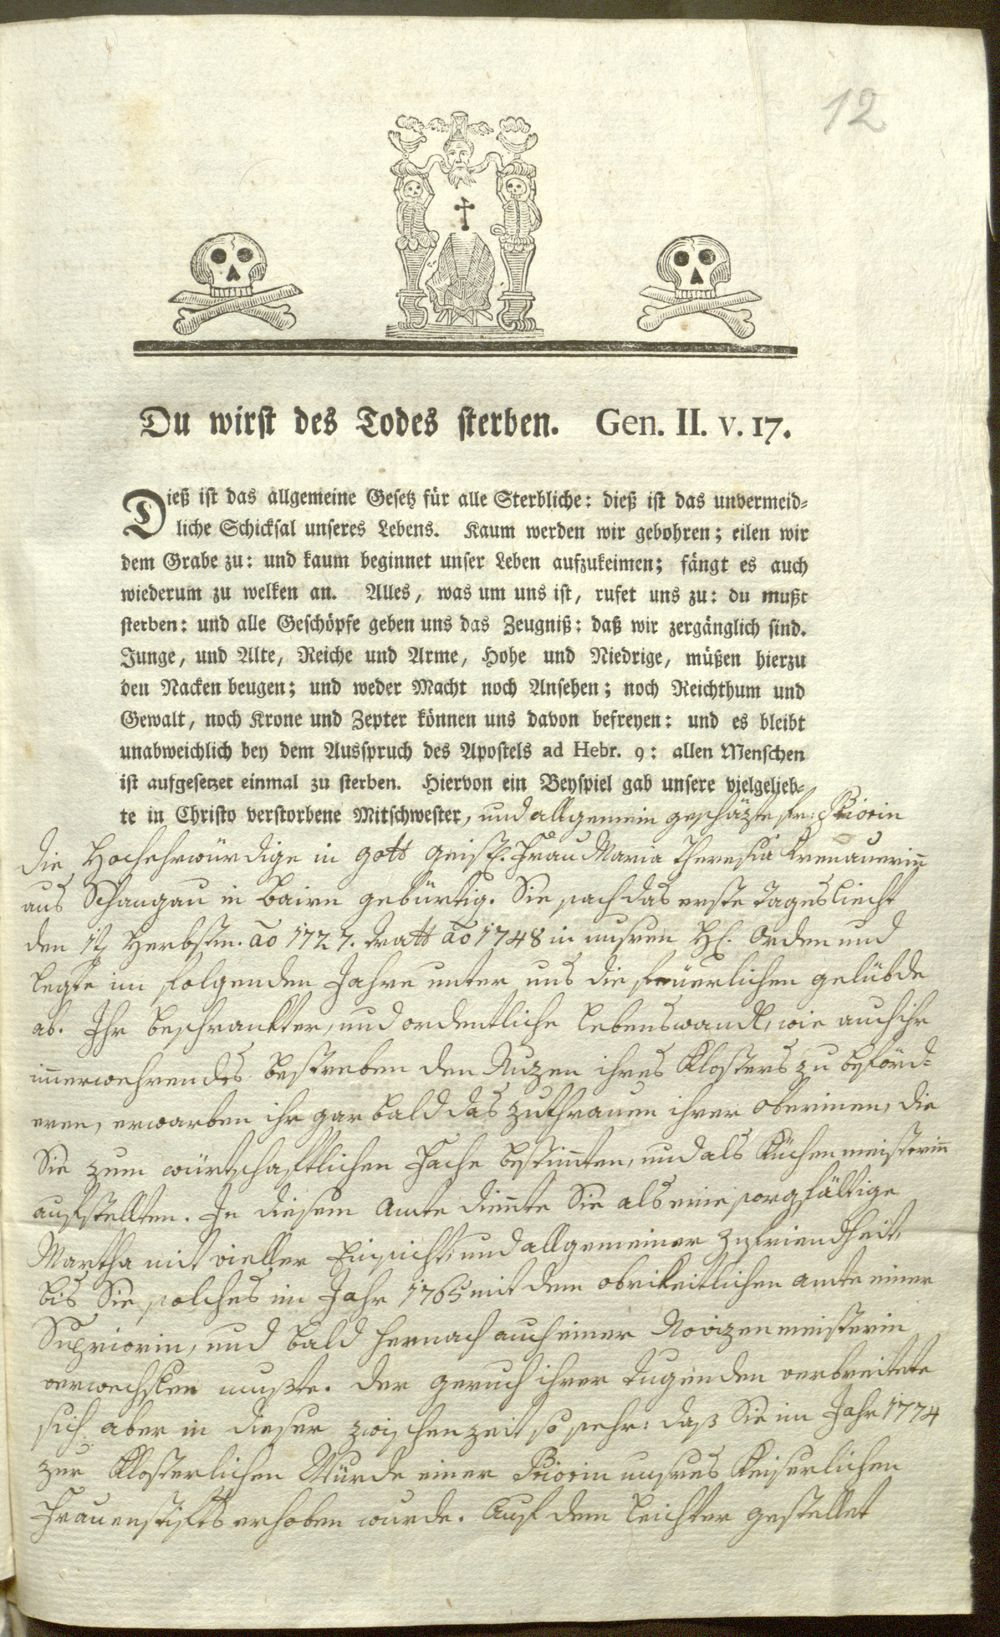 12
Du wirst des Todes sterben. Gen. II. v. 17.
Dieß ist das allgemeine Gesetz für alle Sterbliche: dieß ist das unvermeid-
liche Schicksal unseres Lebens. Kaum werden wir gebohren; eilen wir
dem Grabe zu: und kaum beginnet unser Leben aufzukeimen; fängt es auch
wiederum zu welken an. Alles, was um uns ist, rufet uns zu: du mußt
sterben: und alle Geschöpfe geben uns das Zeugniß: daß wir zergänglich sind.
Junge, und Alte, Reiche und Arme, Hohe und Niedrige, müßen hierzu
den Nacken beugen; und weder Macht noch Ansehen; noch Reichthum und
Gewalt, noch Krone und Zepter können uns davon befreyen: und es bleibt
unabweichlich bey dem Ausspruch des Apostels ad Hebr. 9: allen Menschen
ist aufgesetzet einmal zu sterben. Hiervon ein Beyspiel gab unsere vielgelieb-
te in Christo verstorbene Mitschwester, und allgemein geschäzte Fr: Priorin
die Hochehrwürdige in Gott geistl. Frau Maria Theresia Krenauerin
aus Schangau in Bairn gebürtig. Sie sach das erste Tagesliecht
den Herbstm. ao 1727. tratt ao 1748 in unsren Hl. Orden und
legte im folgenden Jahre unter uns die feüerlichen gelübde
ab. Ihr beschrankter, und ordentliche Lebenswandl, wie auch ihr
immerwehrendes bestreben den Nuzen ihres Klosters zu beförd-
eren, erwarben ihr gar bald das zuthrauen ihrer oberinen, die
Sie zum würtschaftlichen Fache bestimten, und als Küchenmeisterin
aufstellten. In diesem Amte diente Sie als eine sorgfältige
Martha mit vieller Einsicht, und allgemeiner zufriendheit,
bis Sie solches im Jahr 1765 mit dem obrikeitlichen amte einer
Supriorin, und bald hernach auch einer Novizenmeisterin
verwechslen mußte. Der geruch ihrer tugenden verbreitete
sich aber in dieser zwischenzeit so sehr: daß Sie im Jahr 1774
zur Klosterlichen Würde einer Priorin unsres Keiserlichen
Frauenstifts erhoben wurde. Auf dem Leichter gestellet